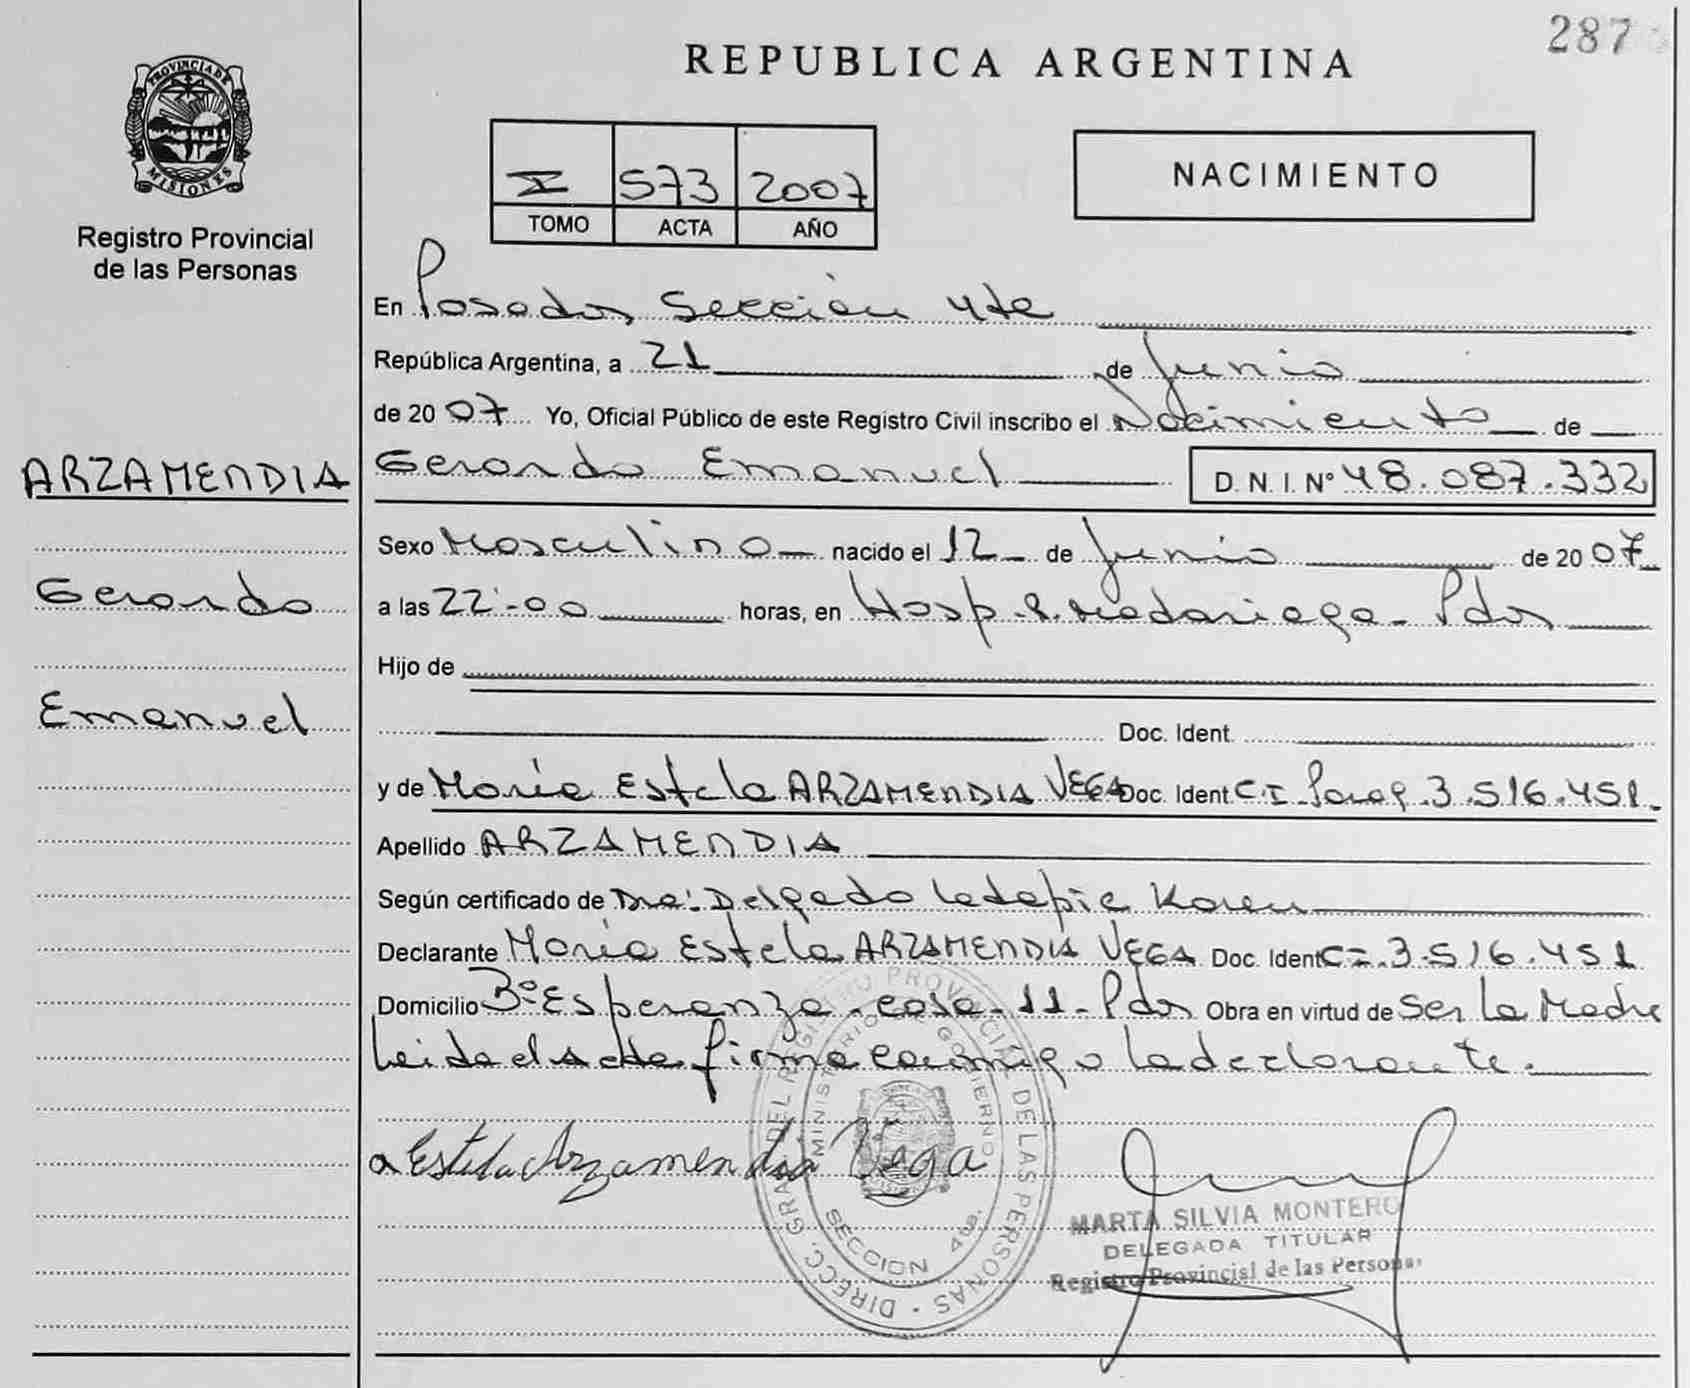 287
REPUBLICA ARGENTINA
PROVINCIA DE MISIONES
Registro Provincial
de las Personas
X 573 2007
TOMO ACTA AÑO
NACIMIENTO
En Posadas Sección 4ta
República Argentina, a 21 de Junio
de 2007 Yo, Oficial Público de este Registro Civil inscribo el Nacimiento de
ARZAMENDIA
Gerardo Emanuel D.N.I. Nº 48.087.332
Sexo Masculino nacido el 12 de Junio de 2007
Gerardo
a las 22:00 horas, en Hosp. R. Madariaga - Pdas
Hijo de
Emanuel
Doc. Ident.
y de María Estela ARZAMENDIA VEGA Doc. Ident. C.I. Parag. 3.516.451.
Apellido ARZAMENDIA
Según certificado de Dra: Delgado Karen
Declarante María Estela ARZAMENDIA VEGA Doc. Ident C I. 3.516.451
Domicilio Bº Esperanza - casa - 11 - Pdas Obra en virtud de Ser la Madre
Leida el acta firma conmigo la declarante.
Estela Arzamendia Vega
DIRECC. GRAL DEL REGISTRO PROVINCIAL DE LAS PERSONAS
MINISTERIO DE GOBIERNO
SECCION 4ta.
MARTA SILVIA MONTERO
DELEGADA TITULAR
Registro Provincial de las Personas